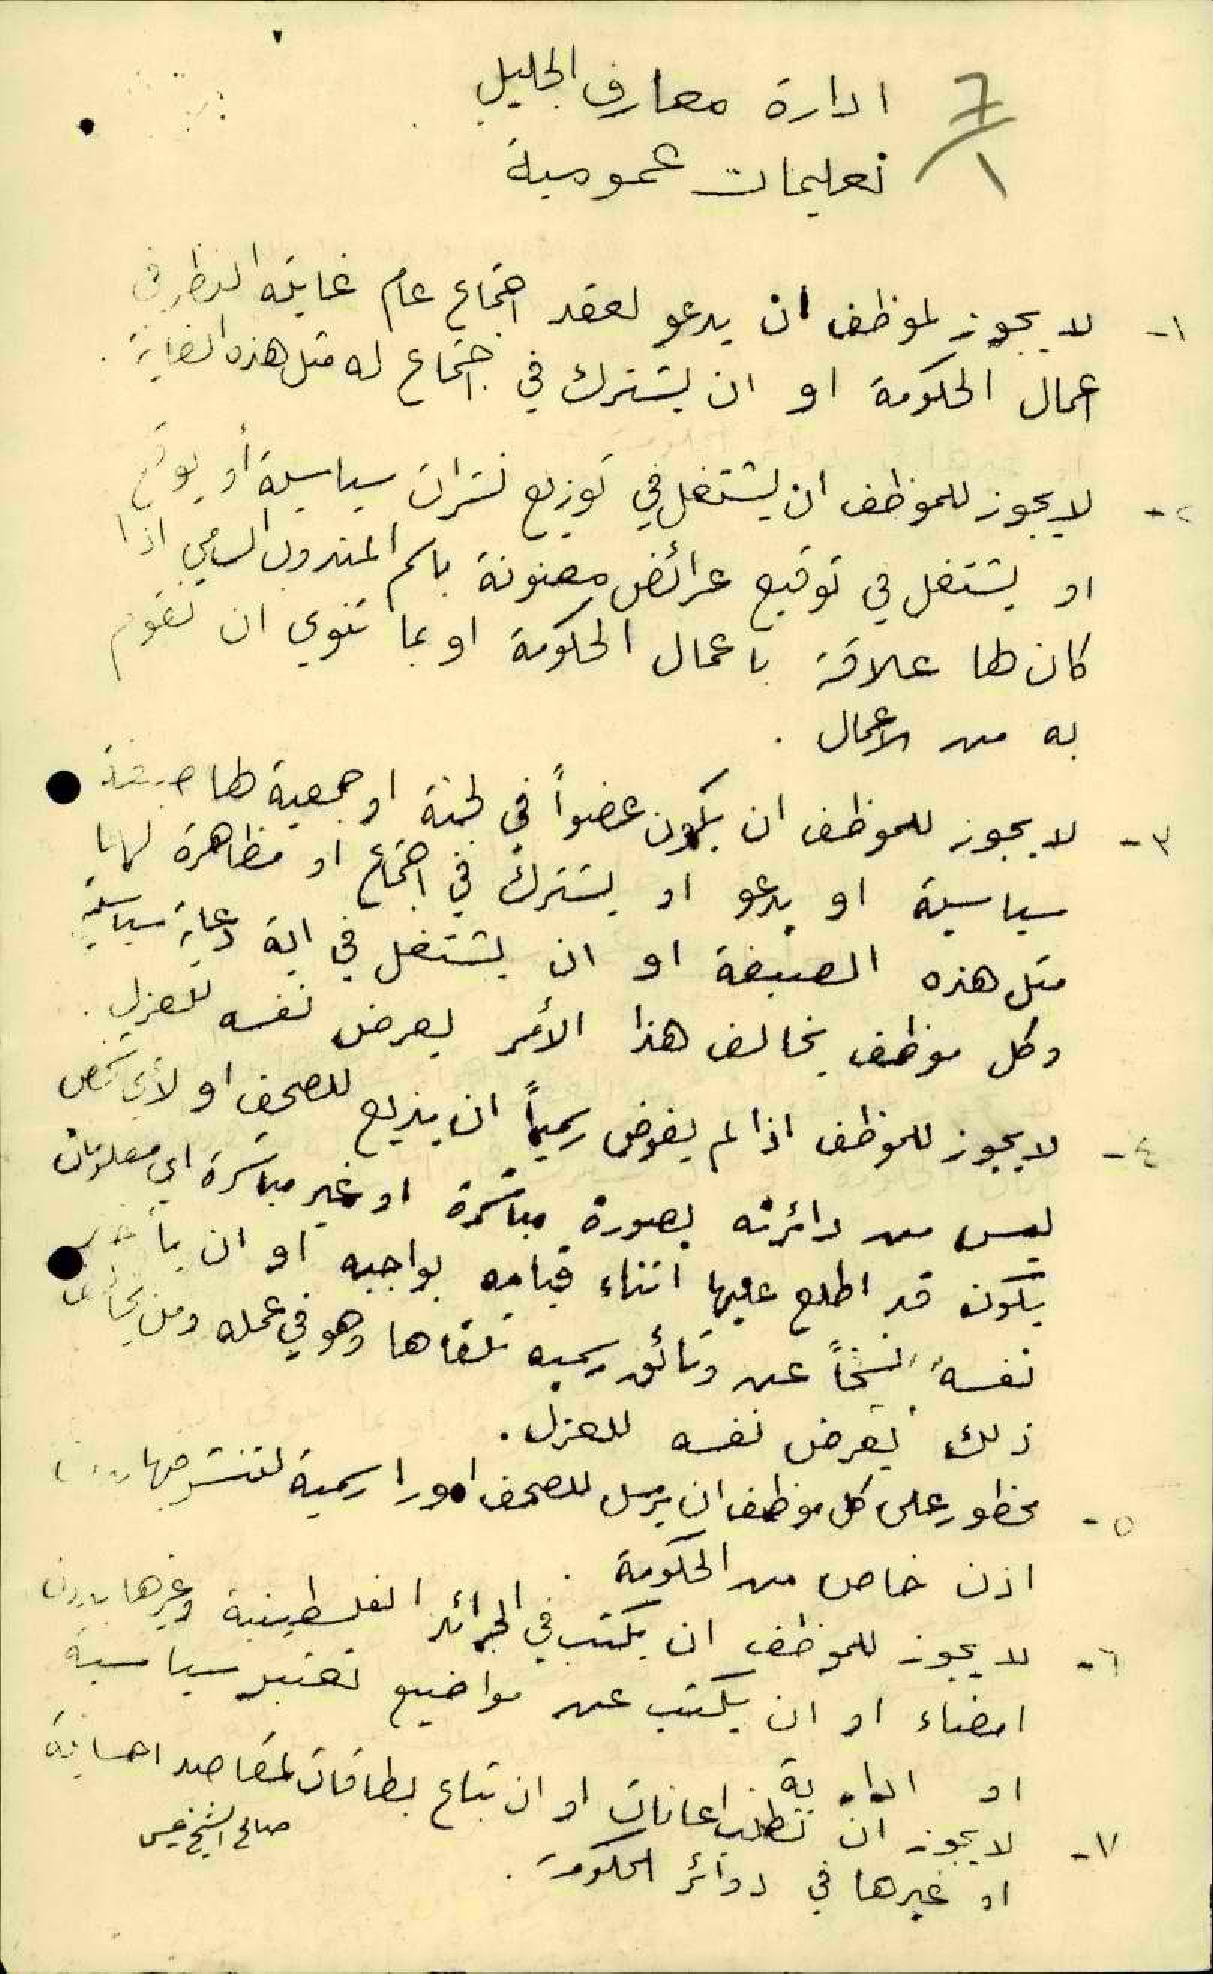 ادارة معارف الجليل
7/1
تعليمات عمومية
١- لا يجوز لموظف ان يدعو لعقد اجتماع عام غايته النظر في
اعمال الحكومة او ان يشترك في اجتماع له مثل هذه الغاية .
٢- لا يجوز للموظف ان يشتغل في توزيع نشرات سياسية أو يوقع
او يشتغل في توقيع عرائض معنونة باسم المندوب السامي اذا
كان لها علاقة باعمال الحكومة او بما تنوي ان تقوم
به من الاعمال .
٣- لا يجوز للموظف ان يكون عضواً في لجنة او جمعية لها صبغة
سياسية او يدعو او يشترك في اجتماع او مظاهرة لها
مثل هذه الصبغة او ان يشتغل في اية دعاية سياسية
وكل موظف يخالف هذا الأمر يعرض نفسه للعزل .
٤- لا يجوز للموظف اذا لم يفوض رسمياً ان يذيع للصحف او لأي شخص
ليس من دائرته بصورة مباشرة او غير مباشرة اي معلومات
يكون قد اطلع عليها اثناء قيامه بواجبه او ان يأخذ
نفسه نسخاً عن وثائق رسميه تلقاها وهو في عمله ومن يخالف
ذلك يعرض نفسه للعزل .
٥- محظور على كل موظف ان يرسل للصحف امورا رسمية لتنشرها
اذن خاص من الحكومة .
٦- لا يجوز للموظف ان يكتب في الجرائد الفلسطينية وغيرها بدون
امضاء او ان يكتب عن مواضيع تعتبر سياسية
او ادارية
٧- لا يجوز ان تطلب اعانات او ان تباع بطاقات لمقاصد احسانية
او غيرها في دوائر الحكومة .
صالح الشيخ